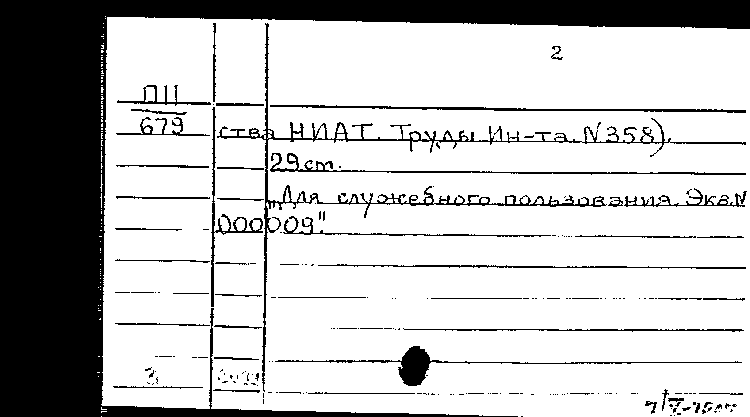 2
П11
679
ства НИАТ. Труды Ин-та. N358).
29 cm.
„Для служебного пользования. Экз.N
000009".
3